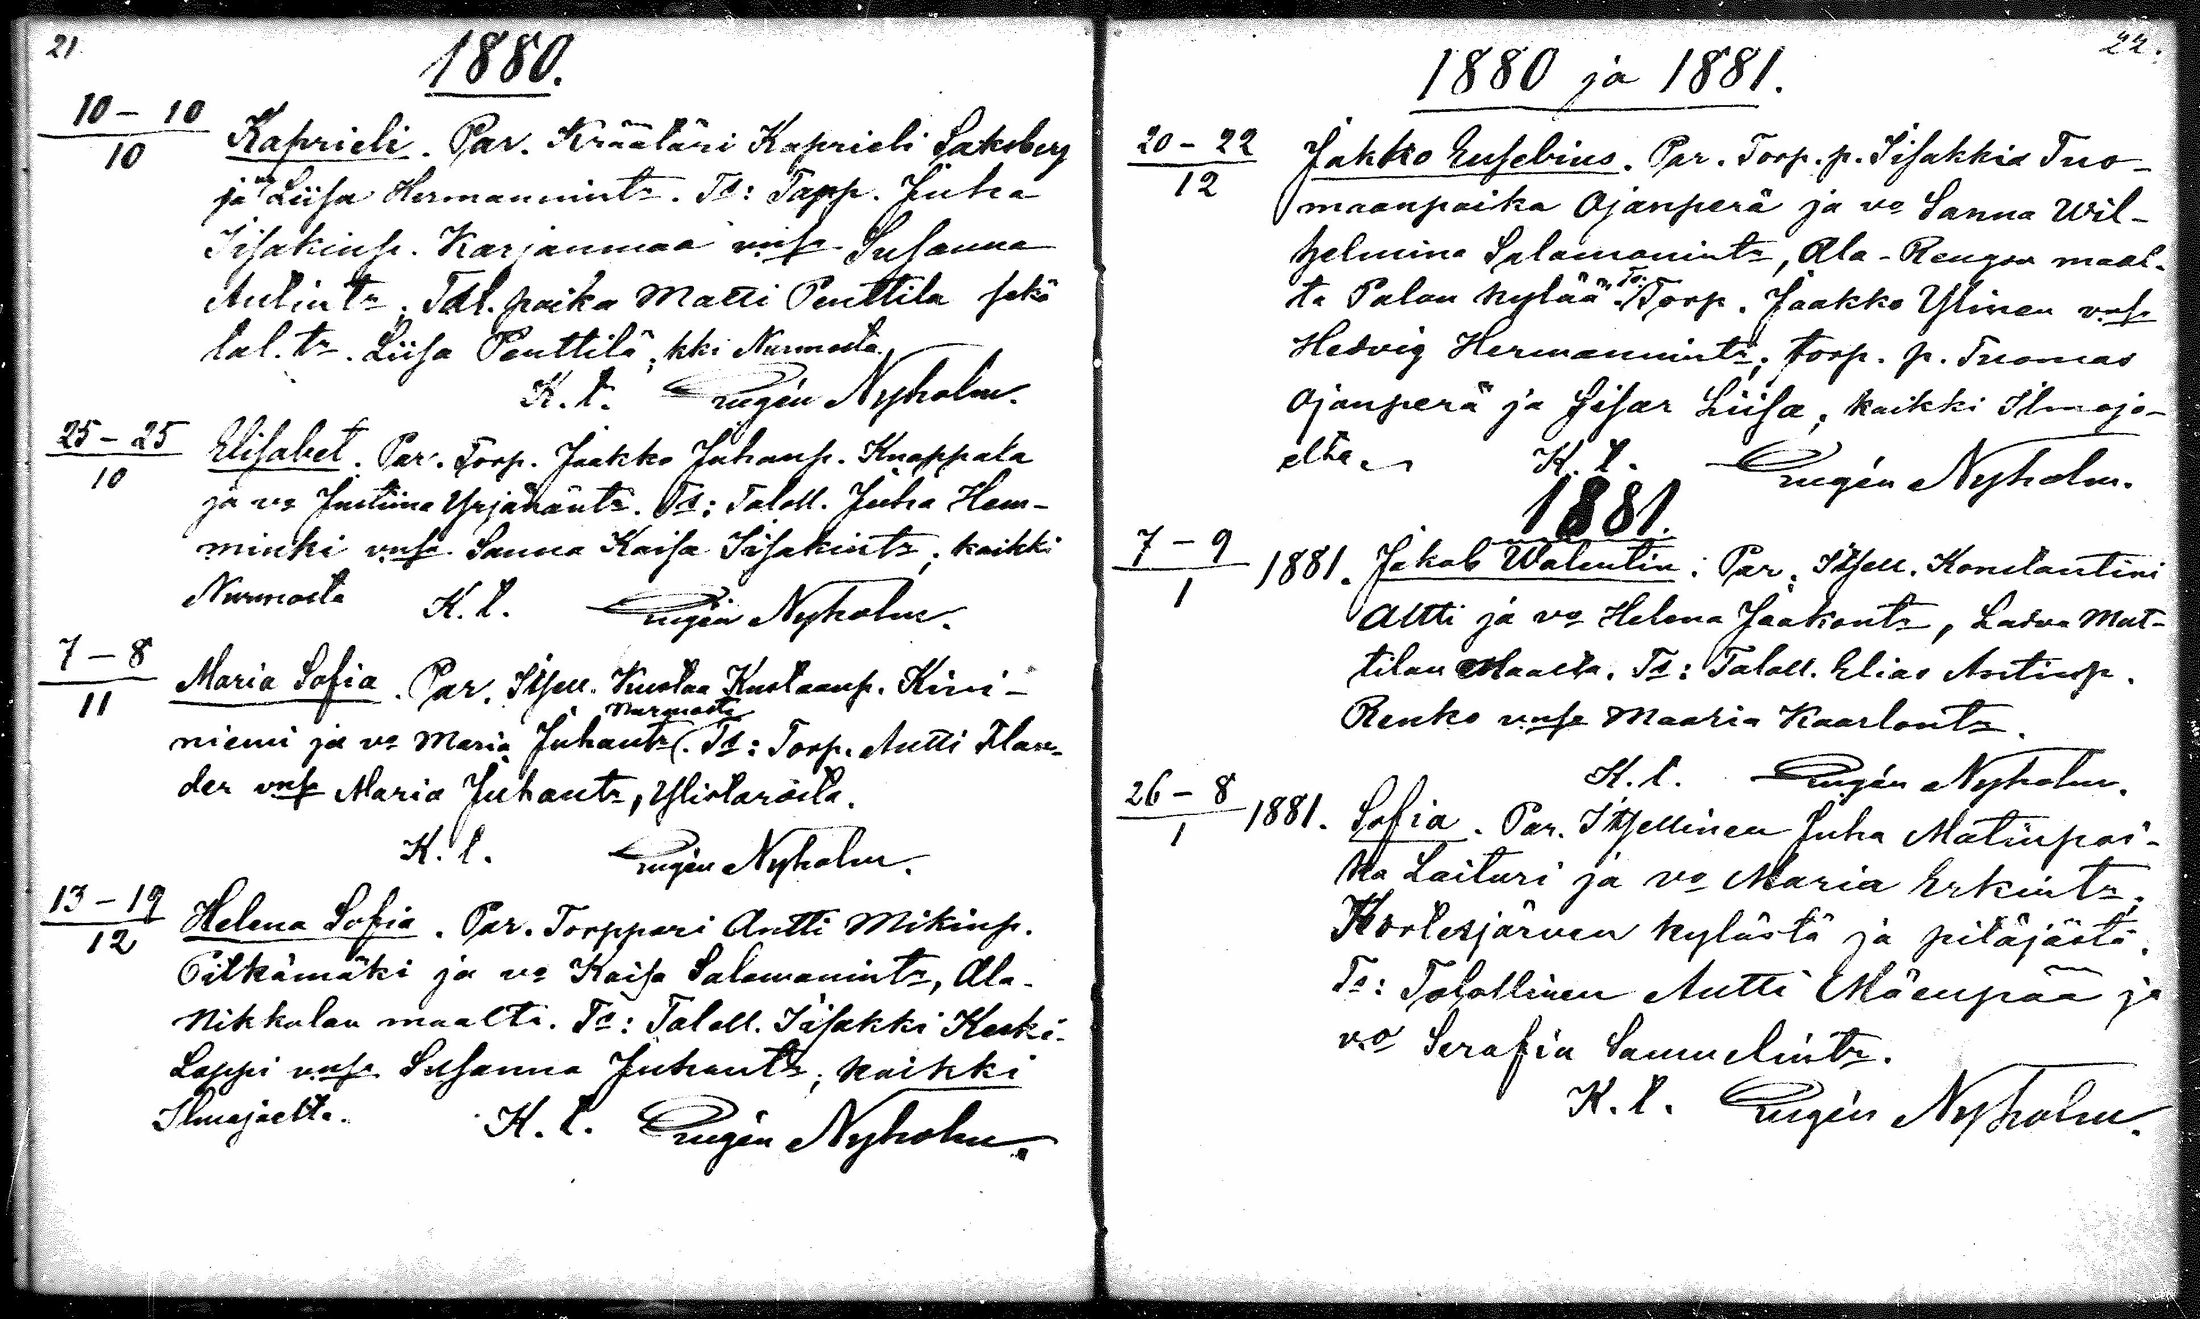 21
1880.
10 - 10
10
Kaprieli. Par. Krääläri Kaprieli Saksberg
ja vo Liisa Hermannintr. Td: Tapp. Juha
Iisakinp. Karjanmaa vnsa Susanna
Antintr. Tal. poika Matti Penttila sekä
tal. tr. Liisa Penttilä, kki Nurmosta.
K. t. Eugén Nyholm.
25 - 25
10
Elisabet. Par. Torp. Jaakko Juhanp. Knappala
ja vo Justiina Yrjänäntr. Td: Taloll. Juha Hem-
minki vnsa Sanna Kaisa Iisakintr, kaikki
Nurmosta K. t. Eugén Nyholm.
7 - 8
11
Maria Sofia. Par. Itsell. Kustaa Kustaanp. Kivi-
Nurmosta
niemi ja vo Maria Juhantr. Td: Torp. Antti Flan-
der vnsa Maria Juhantr, Ylistarosta.
K. t. Eugén Nyholm.
13 - 19
12
Helena Sofia. Par. Torppari Antti Mikinp.
Pitkämäki ja vo Kaisa Salomonintr, Ala-
Nikkolan maalta. Td: Taloll. Iisakki Keski-
Loppi vnsa Susanna Juhantr, kaikki
Ilmajoelta. K. t. Eugén Nyholm.
22.
1880 ja 1881.
20 - 22
12
Jakko Eusebius. Par. Torp. p. Iisakkia Tuo-
maanpoika Ojanperä ja vo Sanna Wil-
helmina Salomonintr, Ala-Rengon maal-
ta Palon kylää. Td: Torp. Jaakko Ylinen vnsa
Hedvig Hermannintr, torp. p. Tuomas
Ojanperä ja sisar Liisa, kaikki Ilmajo-
elta. K. t. Eugén Nyholm.
1881.
7 - 9
1
1881. Jakob Walentin. Par. Itsell. Konstantini
Altti ja vo Helena Jaakontr, Ladva Mat-
tilan Maalta. Td: Taloll. Elias Antinp.
Renko vnsa Maaria Kaarlontr.
K. t. Eugén Nyholm.
26 - 8
1
1881. Sofia. Par. Itsellinen Juha Matinpoi-
ka Laituri ja vo Maria Erkintr,
Kortesjärven kylästä ja pitäjästä.
Td: Talollinen Antti Mäenpää ja
vo Serafia Samuelintr.
K. t. Eugén Nyholm.